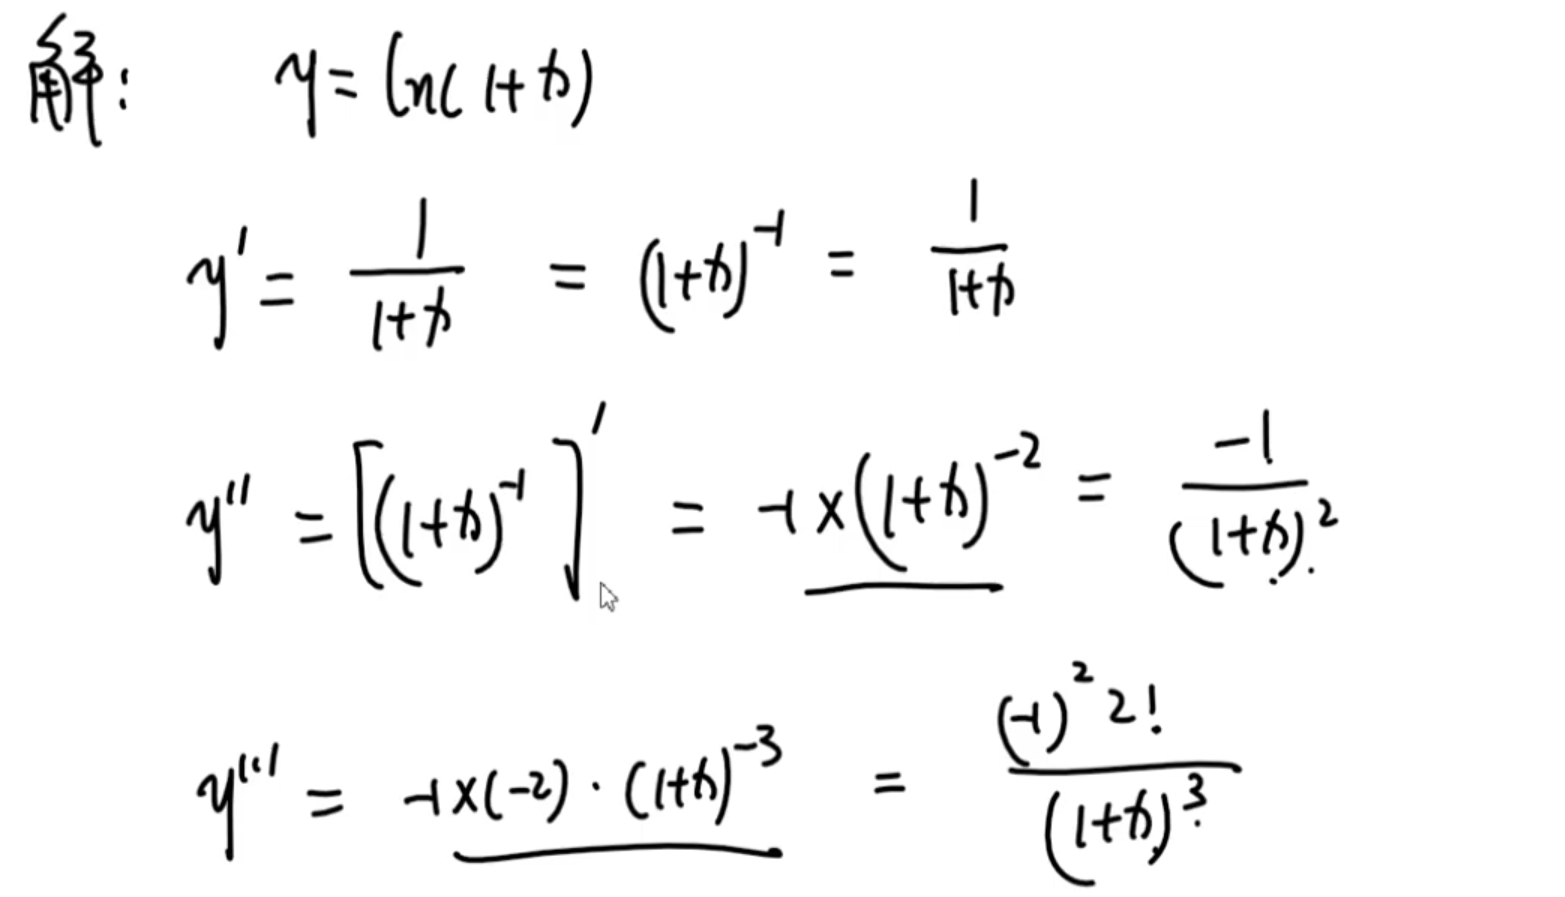 解: y = ln(1+x)
y' = 1/(1+x) = (1+x)^{-1} = 1/(1+x)
y'' = [(1+x)^{-1}]' = -1×(1+x)^{-2} = -1/(1+x)^2
y''' = -1×(-2)·(1+x)^{-3} = (-1)^2 2!/(1+x)^3